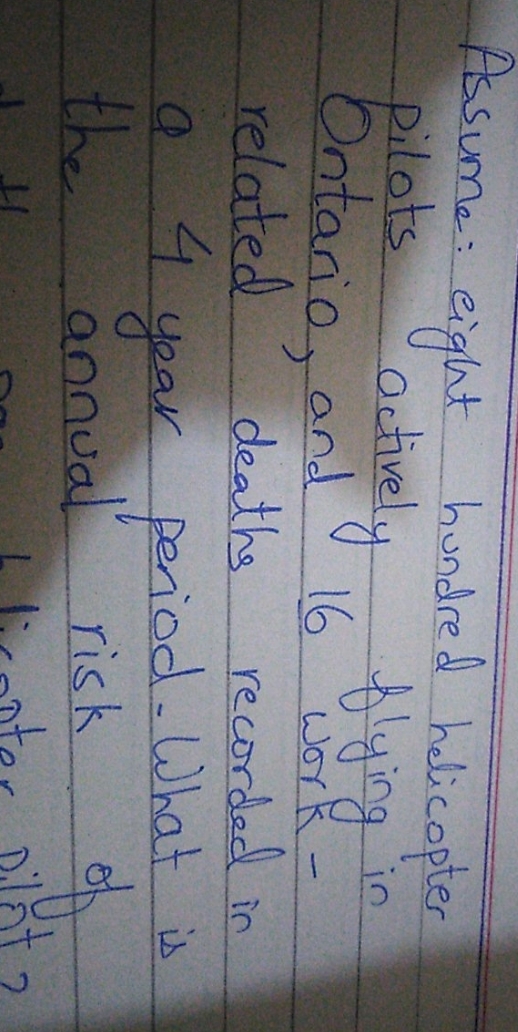 Assume: eight hundred helicopter
pilots actively flying in
Ontario, and 16 work-
related deaths recorded in
a 4 year period. What is
the annual risk of
helicopter pilot?